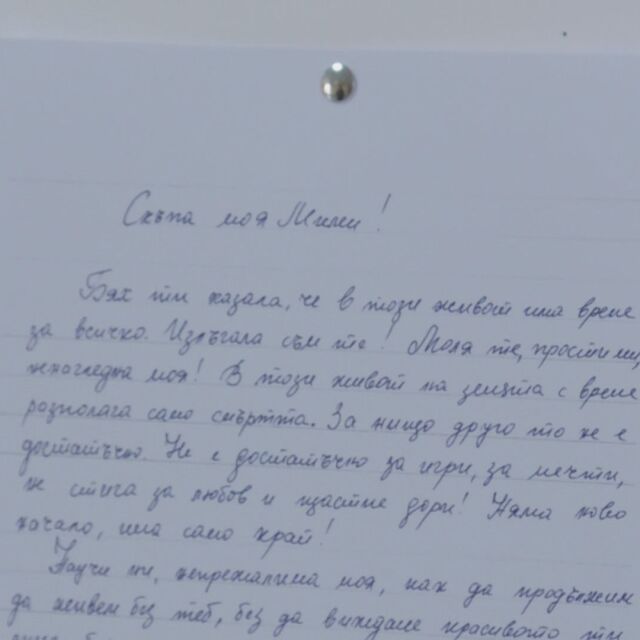 Скъпа моя Мими!
Бях ти казала, че в този живот има време
за всичко. Излъгала съм те! Моля те, прости ми,
ненагледна моя! В този живот на земята с време
разполага само смъртта. За нищо друго то не е
достатъчно. Не е достатъчно за игри, за мечти,
не стига за любов и щастие дори! Няма ново
начало, има само край!
Научи ни, непрежалима моя, как да продължим
да живеем без теб, без да виждаме красивото ти